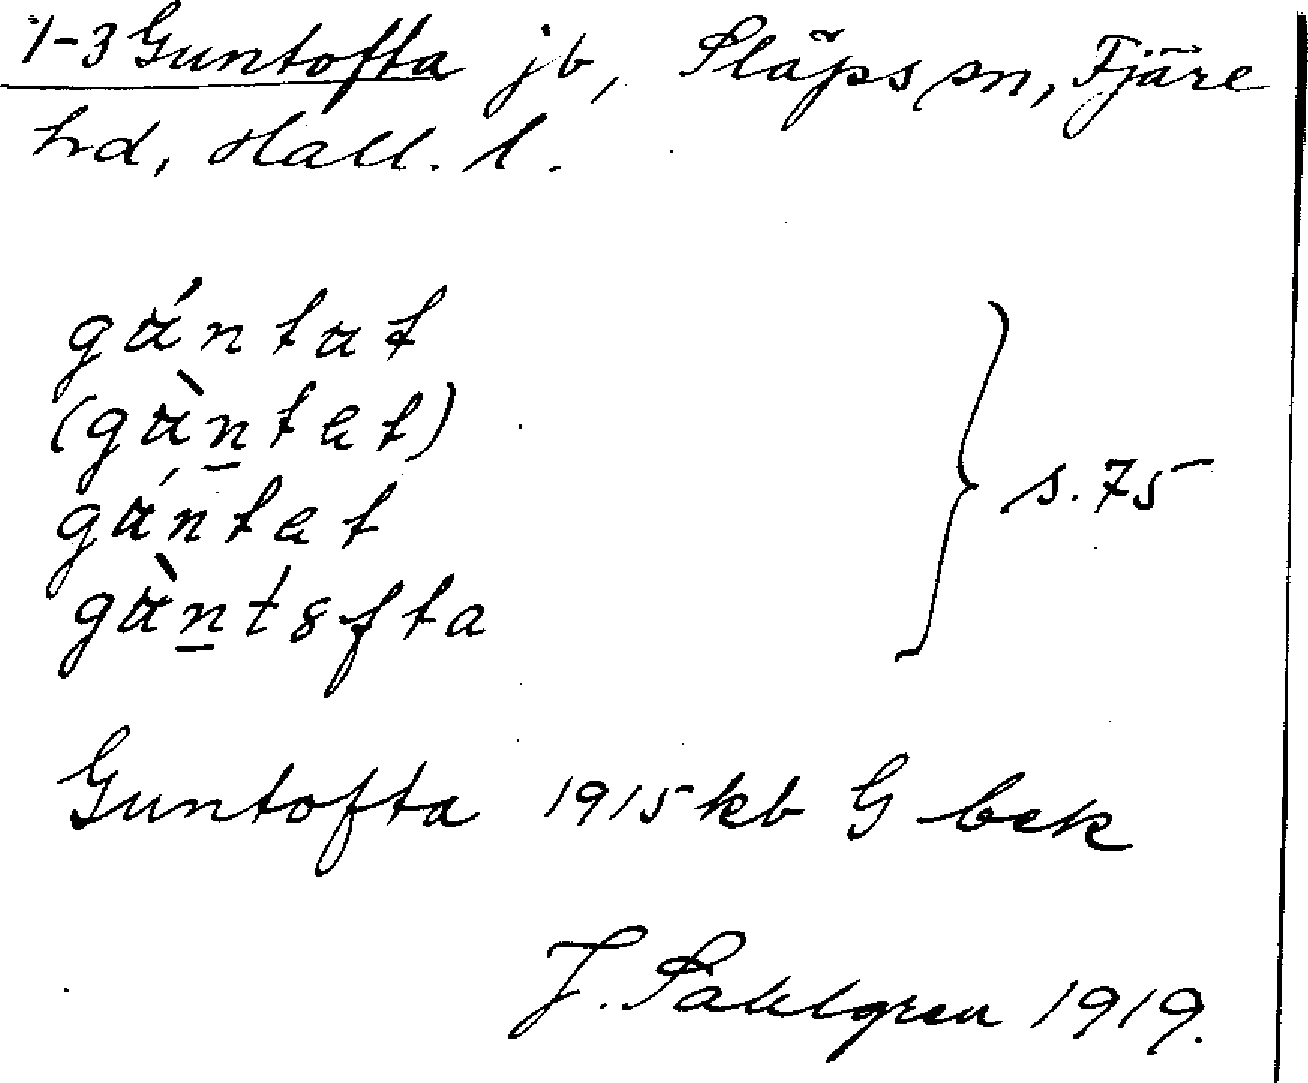 1-3 Guntofta jb, Släps sn, Fjäre
hd, Hall. l.
gántat
(gàn̲tet)
gántet
gàn̲tofta
s. 75
Guntofta 1915 kb G bek
J. Sahlgren 1919.